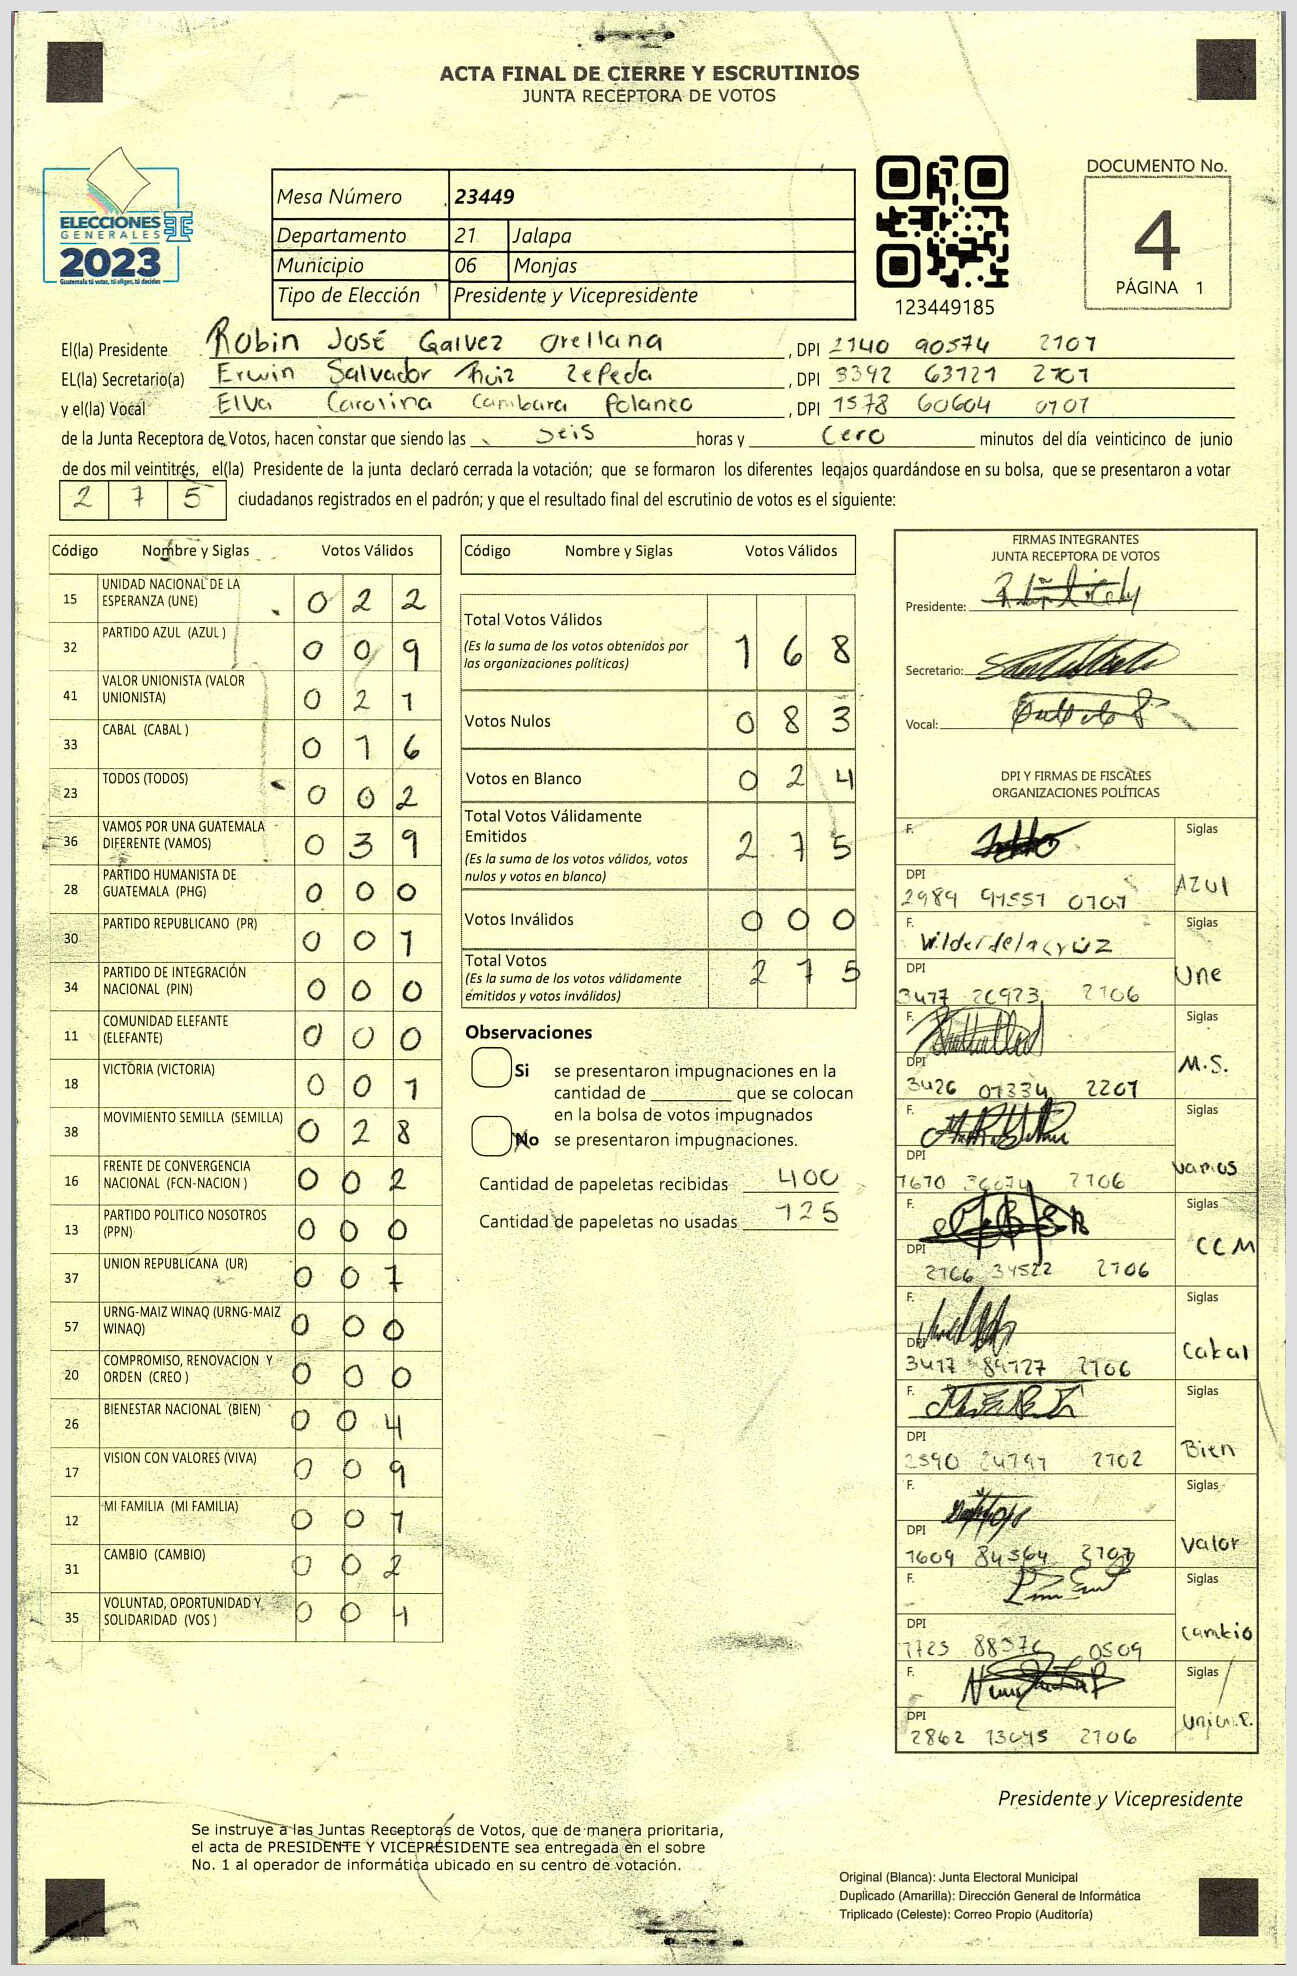 ACTA FINAL DE CIERRE Y ESCRUTINIOS
JUNTA RECEPTORA DE VOTOS
ELECCIONES
GENERALES
2023
Guatemala tú votas, tú eliges, tú decides
Mesa Número 23449
Departamento 21 Jalapa
Municipio 06 Monjas
Tipo de Elección Presidente y Vicepresidente
123449185
DOCUMENTO No.
4
PÁGINA 1
El(la) Presidente Robin José Galvez Orellana, DPI 2140 90574 2107
EL(la) Secretario(a) Erwin Salvador Ruiz Zepeda, DPI 3392 63721 2101
y el(la) Vocal Elva Carolina Cambara Polanco, DPI 1578 60604 0101
de la Junta Receptora de Votos, hacen constar que siendo las seis horas y cero minutos del día veinticinco de junio
de dos mil veintitrés, el(la) Presidente de la junta declaró cerrada la votación; que se formaron los diferentes legajos guardándose en su bolsa, que se presentaron a votar
2 7 5 ciudadanos registrados en el padrón; y que el resultado final del escrutinio de votos es el siguiente:
Código Nombre y Siglas Votos Válidos
15 UNIDAD NACIONAL DE LA ESPERANZA (UNE) 0 2 2
32 PARTIDO AZUL (AZUL ) 0 0 9
41 VALOR UNIONISTA (VALOR UNIONISTA) 0 2 1
33 CABAL (CABAL ) 0 1 6
23 TODOS (TODOS) 0 0 2
36 VAMOS POR UNA GUATEMALA DIFERENTE (VAMOS) 0 3 9
28 PARTIDO HUMANISTA DE GUATEMALA (PHG) 0 0 0
30 PARTIDO REPUBLICANO (PR) 0 0 1
34 PARTIDO DE INTEGRACIÓN NACIONAL (PIN) 0 0 0
11 COMUNIDAD ELEFANTE (ELEFANTE) 0 0 0
18 VICTORIA (VICTORIA) 0 0 1
38 MOVIMIENTO SEMILLA (SEMILLA) 0 2 8
16 FRENTE DE CONVERGENCIA NACIONAL (FCN-NACION ) 0 0 2
13 PARTIDO POLITICO NOSOTROS (PPN) 0 0 0
37 UNION REPUBLICANA (UR) 0 0 7
57 URNG-MAIZ WINAQ (URNG-MAIZ WINAQ) 0 0 0
20 COMPROMISO, RENOVACION Y ORDEN (CREO ) 0 0 0
26 BIENESTAR NACIONAL (BIEN) 0 0 4
17 VISION CON VALORES (VIVA) 0 0 9
12 MI FAMILIA (MI FAMILIA) 0 0 1
31 CAMBIO (CAMBIO) 0 0 2
35 VOLUNTAD, OPORTUNIDAD Y SOLIDARIDAD (VOS ) 0 0 4
Código Nombre y Siglas Votos Válidos
Total Votos Válidos 1 6 8
(Es la suma de los votos obtenidos por
las organizaciones políticas)
Votos Nulos 0 8 3
Votos en Blanco 0 2 4
Total Votos Válidamente
Emitidos 2 7 5
(Es la suma de los votos válidos, votos
nulos y votos en blanco)
Votos Inválidos 0 0 0
Total Votos 2 7 5
(Es la suma de los votos válidamente
emitidos y votos inválidos)
Observaciones
Si se presentaron impugnaciones en la
cantidad de ________ que se colocan
en la bolsa de votos impugnados
No se presentaron impugnaciones.
Cantidad de papeletas recibidas 400
Cantidad de papeletas no usadas 125
FIRMAS INTEGRANTES
JUNTA RECEPTORA DE VOTOS
Presidente:
Secretario:
Vocal:
DPI Y FIRMAS DE FISCALES
ORGANIZACIONES POLÍTICAS
F. Siglas
DPI AZUL
2989 91551 0101
F. Wilder de la cruz Siglas
DPI Une
3477 20923 2106
F. Siglas
DPI M.S.
3426 07334 2201
F. Siglas
DPI Vamos
1670 2106
F. Siglas
DPI CCM
2166 34522 2106
F. Siglas
DPI Cabal
3417 89727 2106
F. Siglas
DPI Bien
2590 24791 2102
F. Siglas
DPI Valor
1609 84564 2107
F. Siglas
DPI Cambio
1723 0509
F. Siglas
DPI
2862 13045 2106
Presidente y Vicepresidente
Se instruye a las Juntas Receptoras de Votos, que de manera prioritaria,
el acta de PRESIDENTE Y VICEPRESIDENTE sea entregada en el sobre
No. 1 al operador de informática ubicado en su centro de votación.
Original (Blanca): Junta Electoral Municipal
Duplicado (Amarilla): Dirección General de Informática
Triplicado (Celeste): Correo Propio (Auditoría)